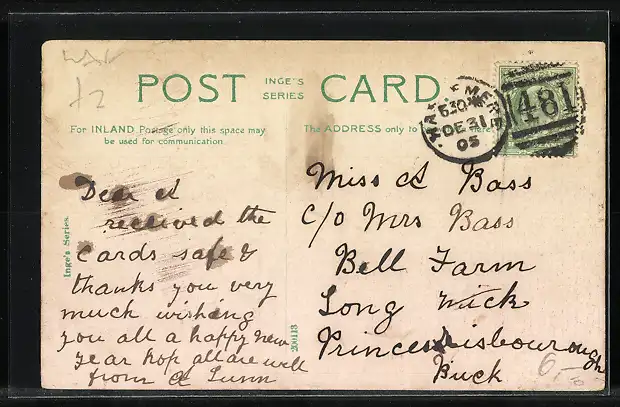 POST INGE'S SERIES CARD
For INLAND Postage only this space may
be used for communication.
The ADDRESS only to be here
HASLEMERE
630PM
DE 31
05
481
Dear A
received the
cards safe &
thanks you very
much wishing
you all a happy new
year hop all are well
from A Lunn
Miss A Bass
C/o Mrs Bass
Bell Farm
Long Wick
Princes Risbourough
Buck
Inge's Series.
200113
6,-